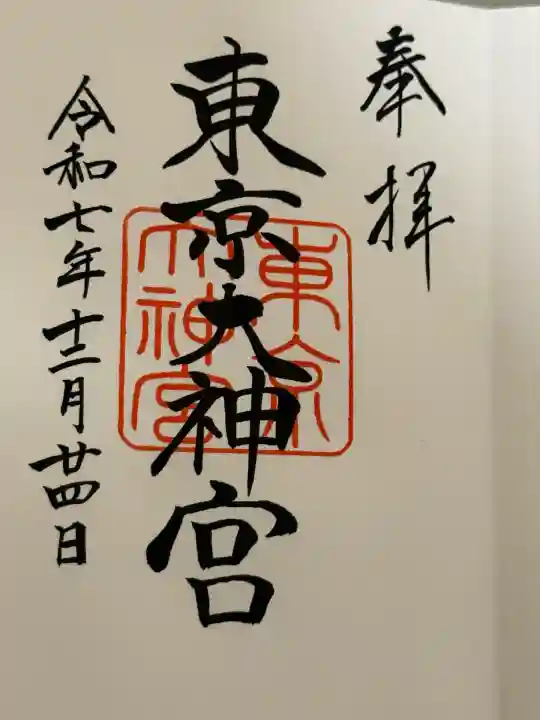 奉拝
東京大神宮
東京大神宮
令和七年十二月廿四日